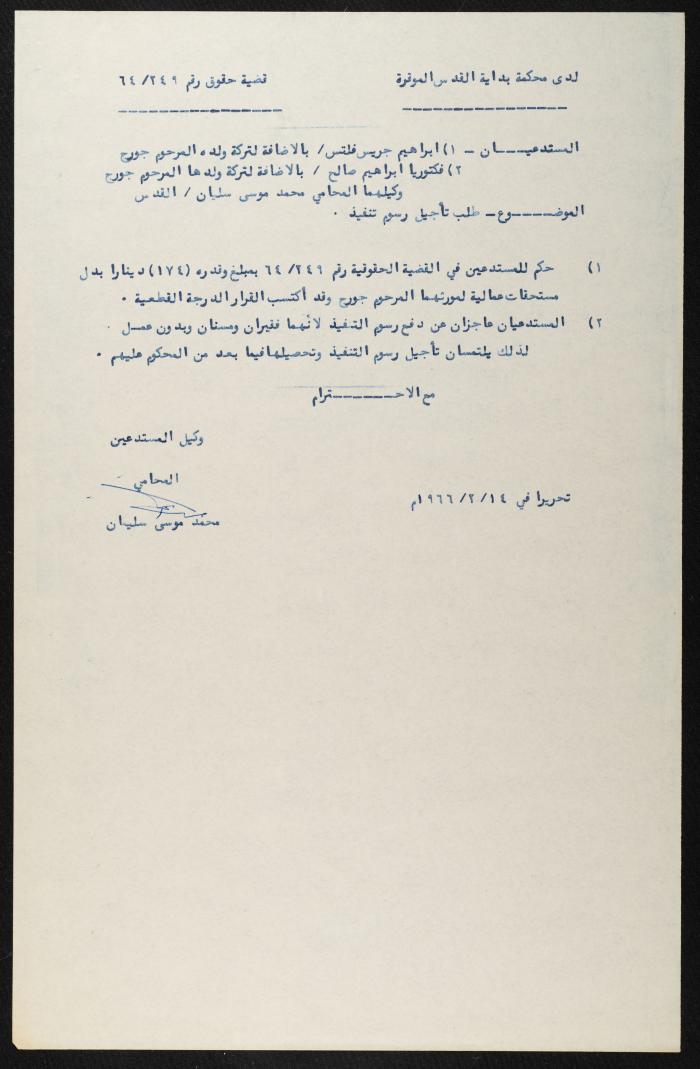 لدى محكمة بداية القدس الموقرة قضية حقوق رقم ٦٤/٢٤٩
المستدعيـــان - ١) ابراهيم جريس فلتس/ بالاضافة لتركة ولده المرحوم جورج
٢) فكتوريا ابراهيم صالح / بالاضافة لتركة ولدها المرحوم جورج
وكيلهما المحامي محمد موسى سليان / القدس
الموضــــوع - طلب تأجيل رسوم تنفيذ .
١) حكم للمستدعين في القضية الحقوقية رقم ٦٤/٢٤٩ بمبلغ وقدره (١٧٤) دينارا بدل
مستحقات عمالية لمورثهما المرحوم جورج وقد أكتسب القرار الدرجة القطعية .
٢) المستدعيان عاجزان عن دفع رسوم التنفيذ لأنهما فقيران ومسنان وبدون عمـل .
لذلك يلتمسان تأجيل رسوم التنفيذ وتحصيلها فيما بعد من المحكوم عليهم .
مع الاحــــــترام
وكيل المستدعين
المحامي
تحريرا في ١٩٦٦/٢/١٤م
محمد موسى سليان